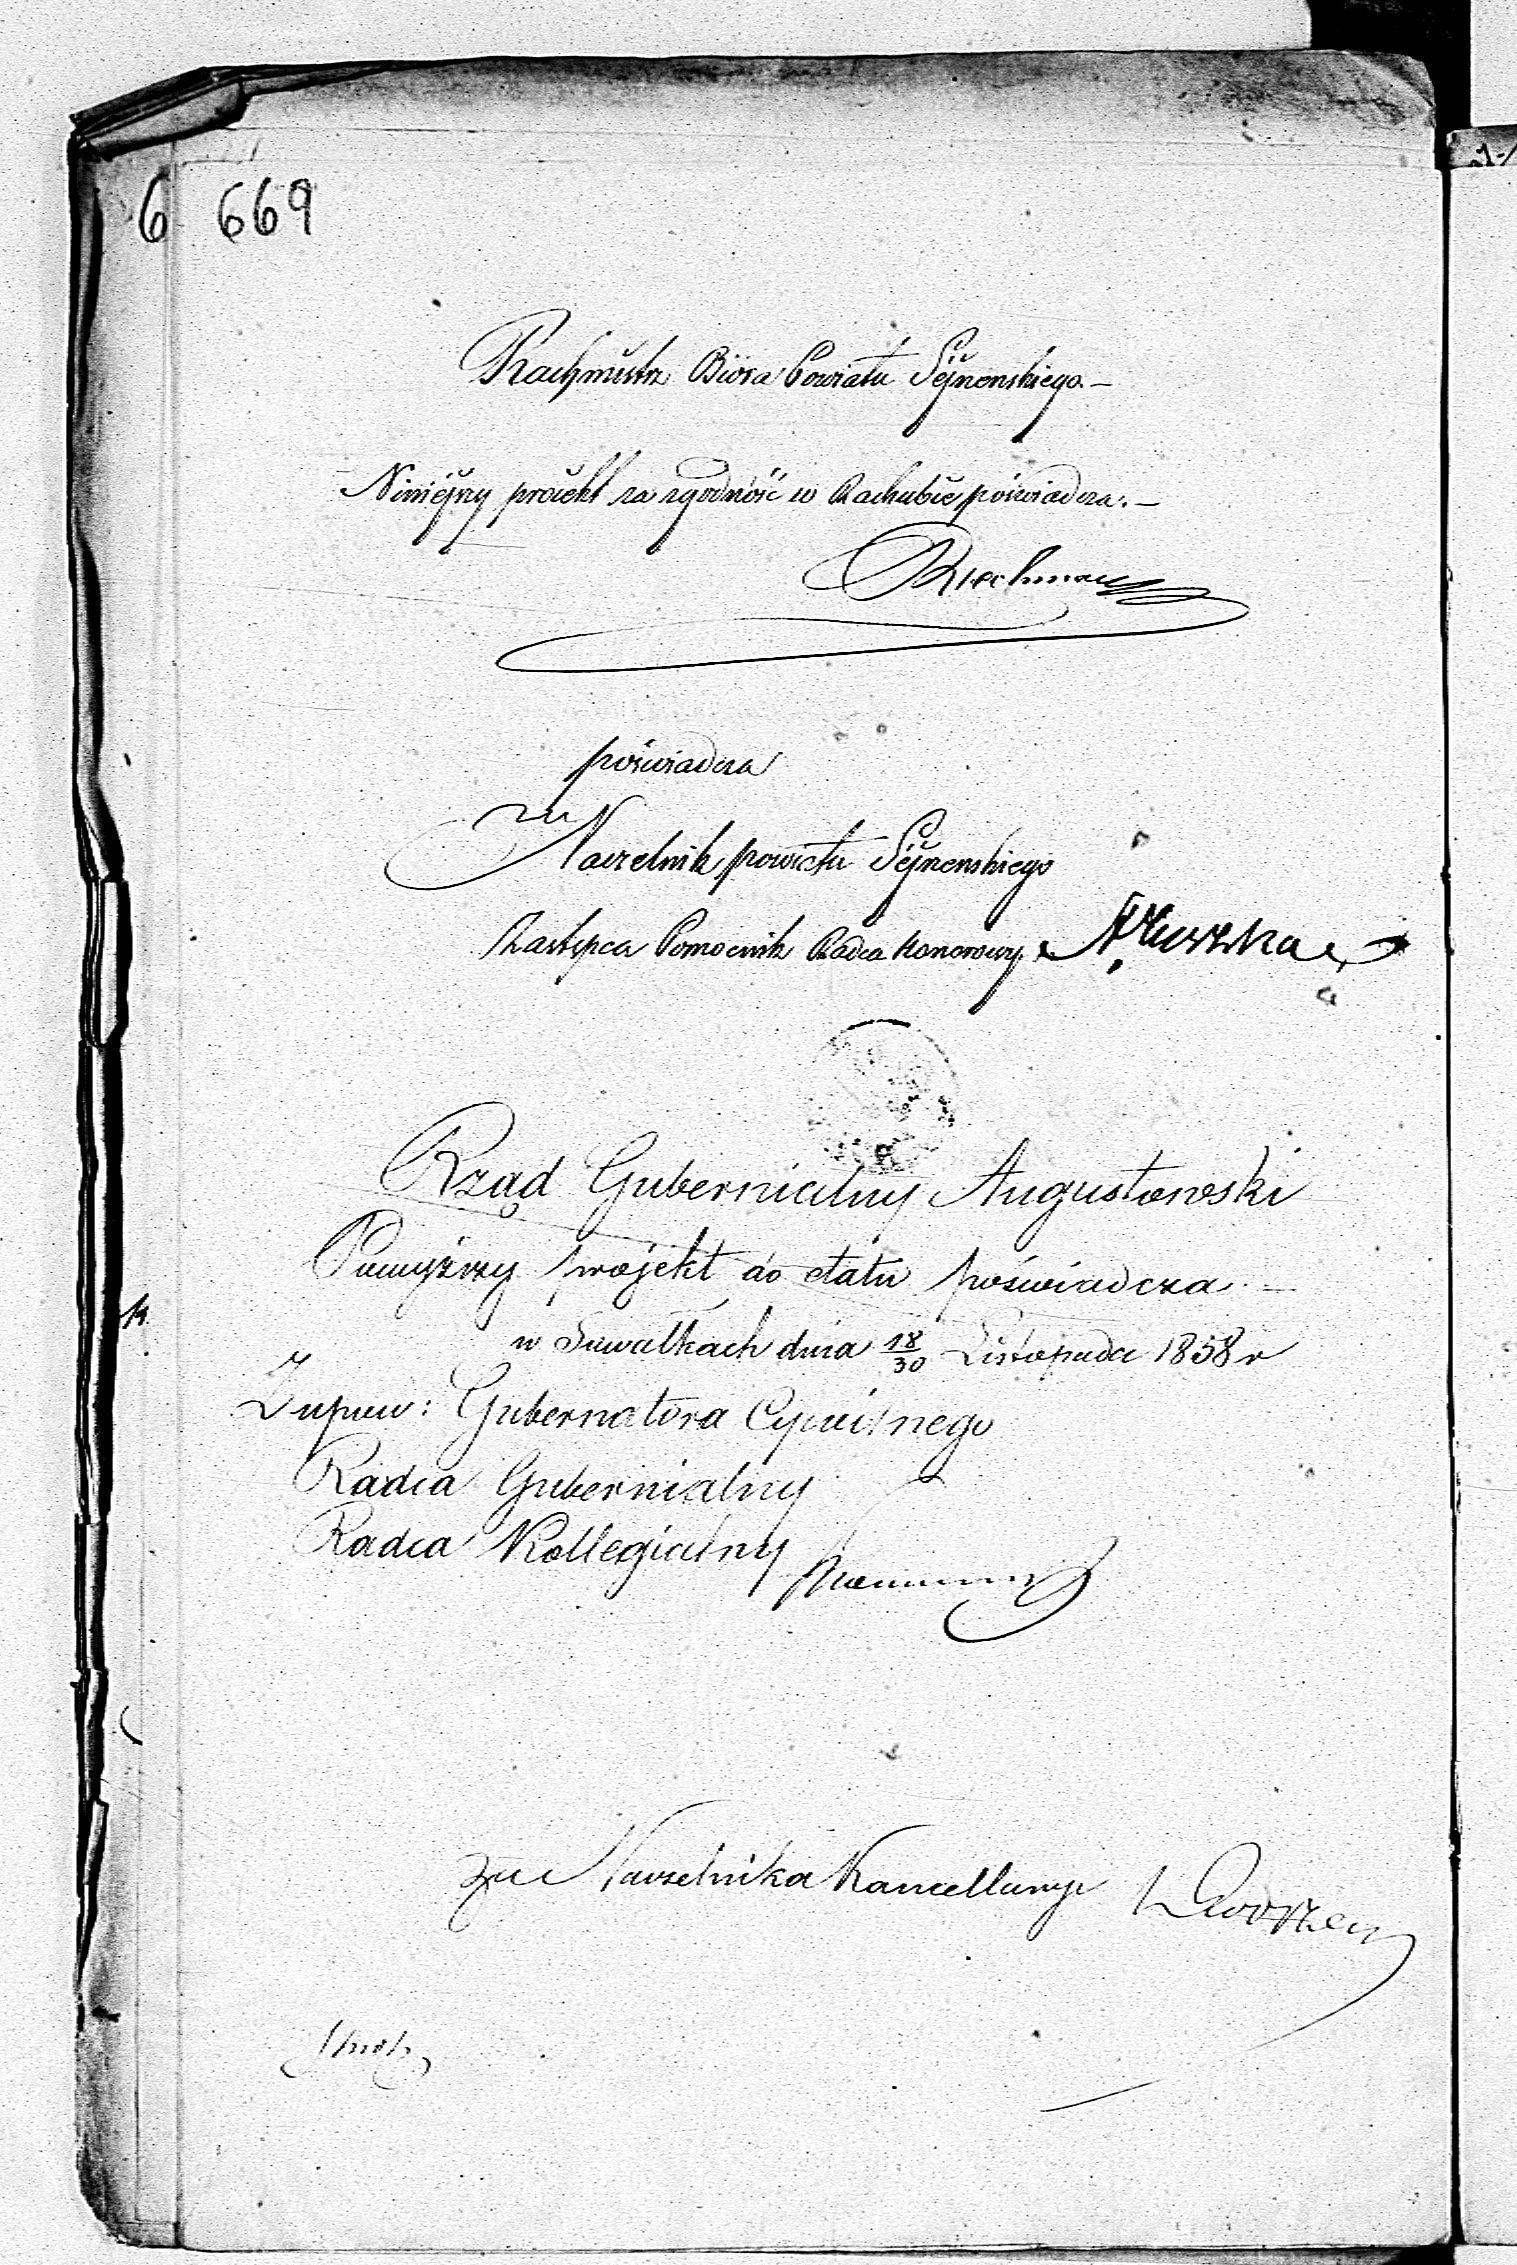 6 669
Rachmistrz Biora Powiatu Sejnenskiego.—
Niniejszy projekt za zgodność w Rachubie poświadcza.—
poświadcza
za Naczelnik powiatu Sejnenskiego
Zastępca Pomocnik Radca Honorowy
Rząd Gubernialny Augustowski
Powyższy projekt do etatu poświadcza.—
w Suwałkach dnia 18/30 Listopada 1858 r
Gubernatora Cywilnego
Radca Gubernialny
Radca Kollegialny
za Naczelnika Kancellaryi